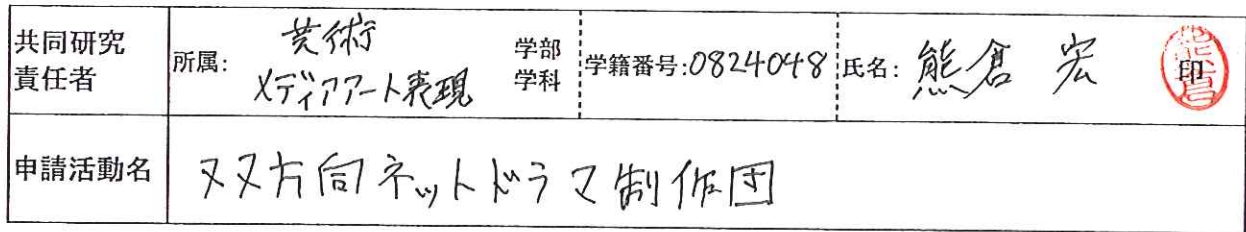 共同研究 責任者 所属: 芸術 学部 メディアアート表現 学科 学籍番号:0824048 氏名: 熊倉 宏 印
申請活動名 双方向ネットドラマ制作団